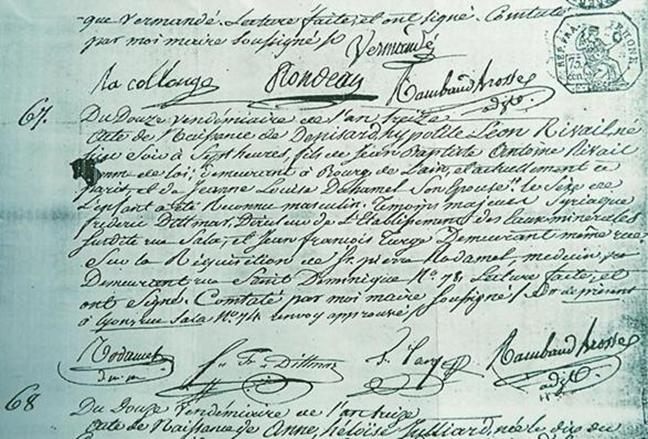 que Vermandé. Lecture faite, et ont signé. Constaté
par moi maire soussigné
Vermandé
la collonge Rondeau Rambaud Brosse
adjt.
REP. FRA RHONE.
75
67. Du Douze Vendémiaire de l'an treize
acte de Naissance de Denisard, hypolite Léon Rivail, né
hier Soir à Sept heures, fils de Jean Baptiste Antoine Rivail
homme de loi, demeurant à Bourg de Lain, et actuellement a
Paris, et de Jeanne Louise Duhamel Son épouse, le Sexe de
L'enfant a été Reconnu masculin. Temoins majeurs Syriaque
frédéric Dittmar, Directeur de L'Etablissement des Eaux minerales
Susdite rue Sala, et Jean françois Targe Demeurant même rue
Sur la Réquisition de Sr. pierre Radamel, medecin,
Demeurant rue Saint Dominique No. 78. Lecture faite, et
ont Signé. Constaté par moi maire Soussigné
à Lyon, rue Sala No. 74 renvoy approuvé
Radamel f. Fr. Dittmar Rambaud Brosse
d.m.m. adjt.
68 Du Douze Vendémiaire de l'an treize
acte de Naissance de Anne, héloïse Julliard, née le dix du